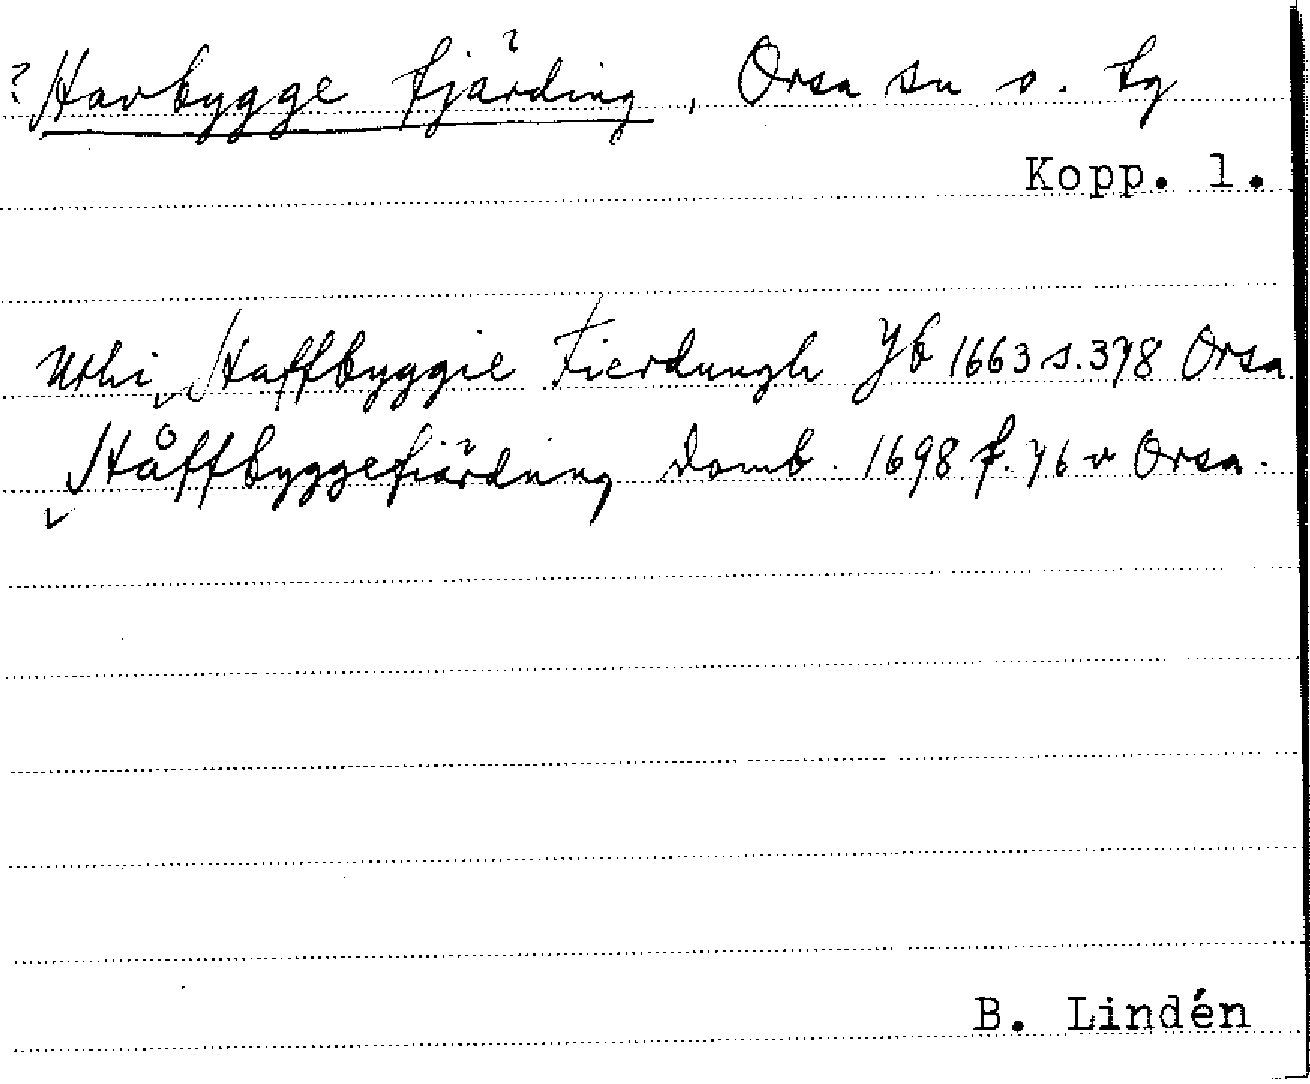 ? Havbygge fjärding, Orsa sn o. tg
Kopp. l.
Uthi Haffbyggie Fierdungh Jb 1663 s. 378 Orsa
Håffbyggefiärding Domb. 1698 f. 76 v Orsa.
B. Lindén